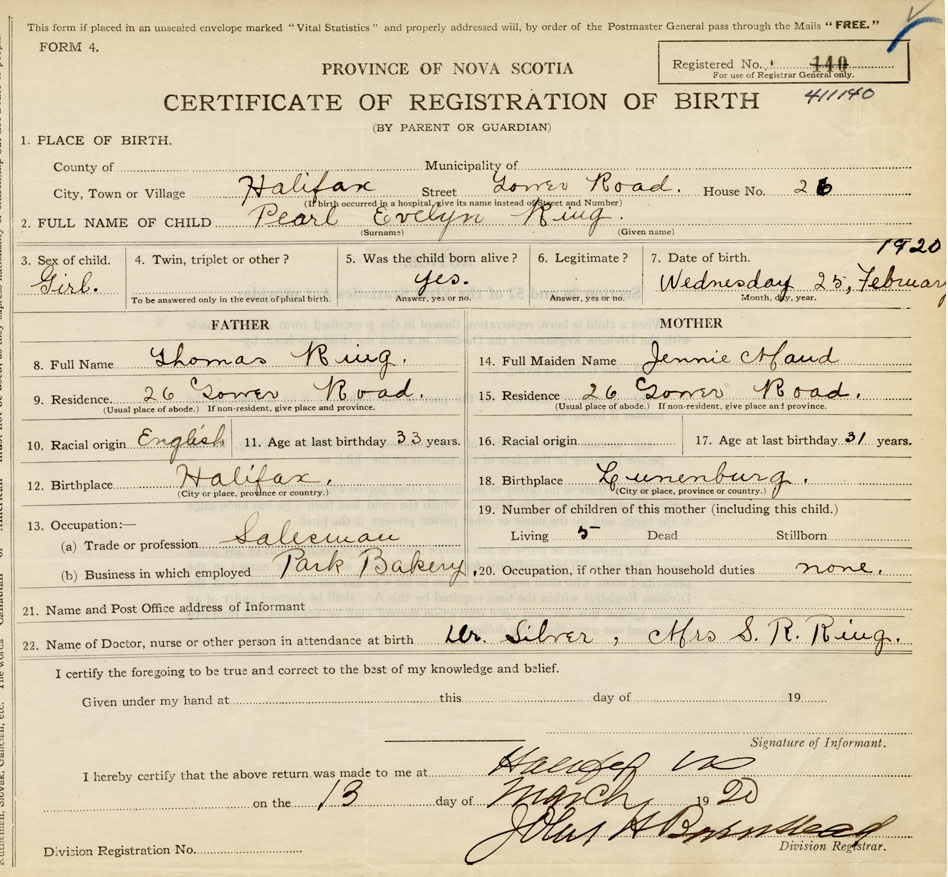 This form if placed in an unsealed envelope marked "Vital Statistics" and properly addressed will, by order of the Postmaster General pass through the Mails "FREE."
FORM 4.
Registered No. 140
For use of Registrar General only.
411140
PROVINCE OF NOVA SCOTIA
CERTIFICATE OF REGISTRATION OF BIRTH
(BY PARENT OR GUARDIAN)
1. PLACE OF BIRTH.
County of Municipality of
City, Town or Village Halifax Street Gower Road. House No. 26
(If birth occurred in a hospital, give its name instead of Street and Number)
2. FULL NAME OF CHILD Pearl Evelyn King.
(Surname) (Given name)
1920
3. Sex of child. 4. Twin, triplet or other? 5. Was the child born alive? 6. Legitimate? 7. Date of birth.
Girl. yes. Wednesday 25, February
To be answered only in the event of plural birth. Answer, yes or no. Answer, yes or no. Month, day, year.
FATHER MOTHER
8. Full Name Thomas King. 14. Full Maiden Name Jennie Maud
9. Residence. 26 Gower Road. 15. Residence 26 Gower Road.
(Usual place of abode.) If non-resident, give place and province. (Usual place of abode.) If non-resident, give place and province.
10. Racial origin English 11. Age at last birthday 33 years. 16. Racial origin 17. Age at last birthday 31 years.
12. Birthplace Halifax. 18. Birthplace Lunenburg.
(City or place, province or country.) (City or place, province or country.)
13. Occupation:— 19. Number of children of this mother (including this child.)
(a) Trade or profession Salesman Living 5 Dead Stillborn
(b) Business in which employed Park Bakery. 20. Occupation, if other than household duties none.
21. Name and Post Office address of Informant
22. Name of Doctor, nurse or other person in attendance at birth Dr. Silver, Mrs S. R. King.
I certify the foregoing to be true and correct to the best of my knowledge and belief.
Given under my hand at this day of 19
Signature of Informant.
I hereby certify that the above return was made to me at Halifax NS
on the 13 day of March 1920
John H
Division Registration No. Division Registrar.